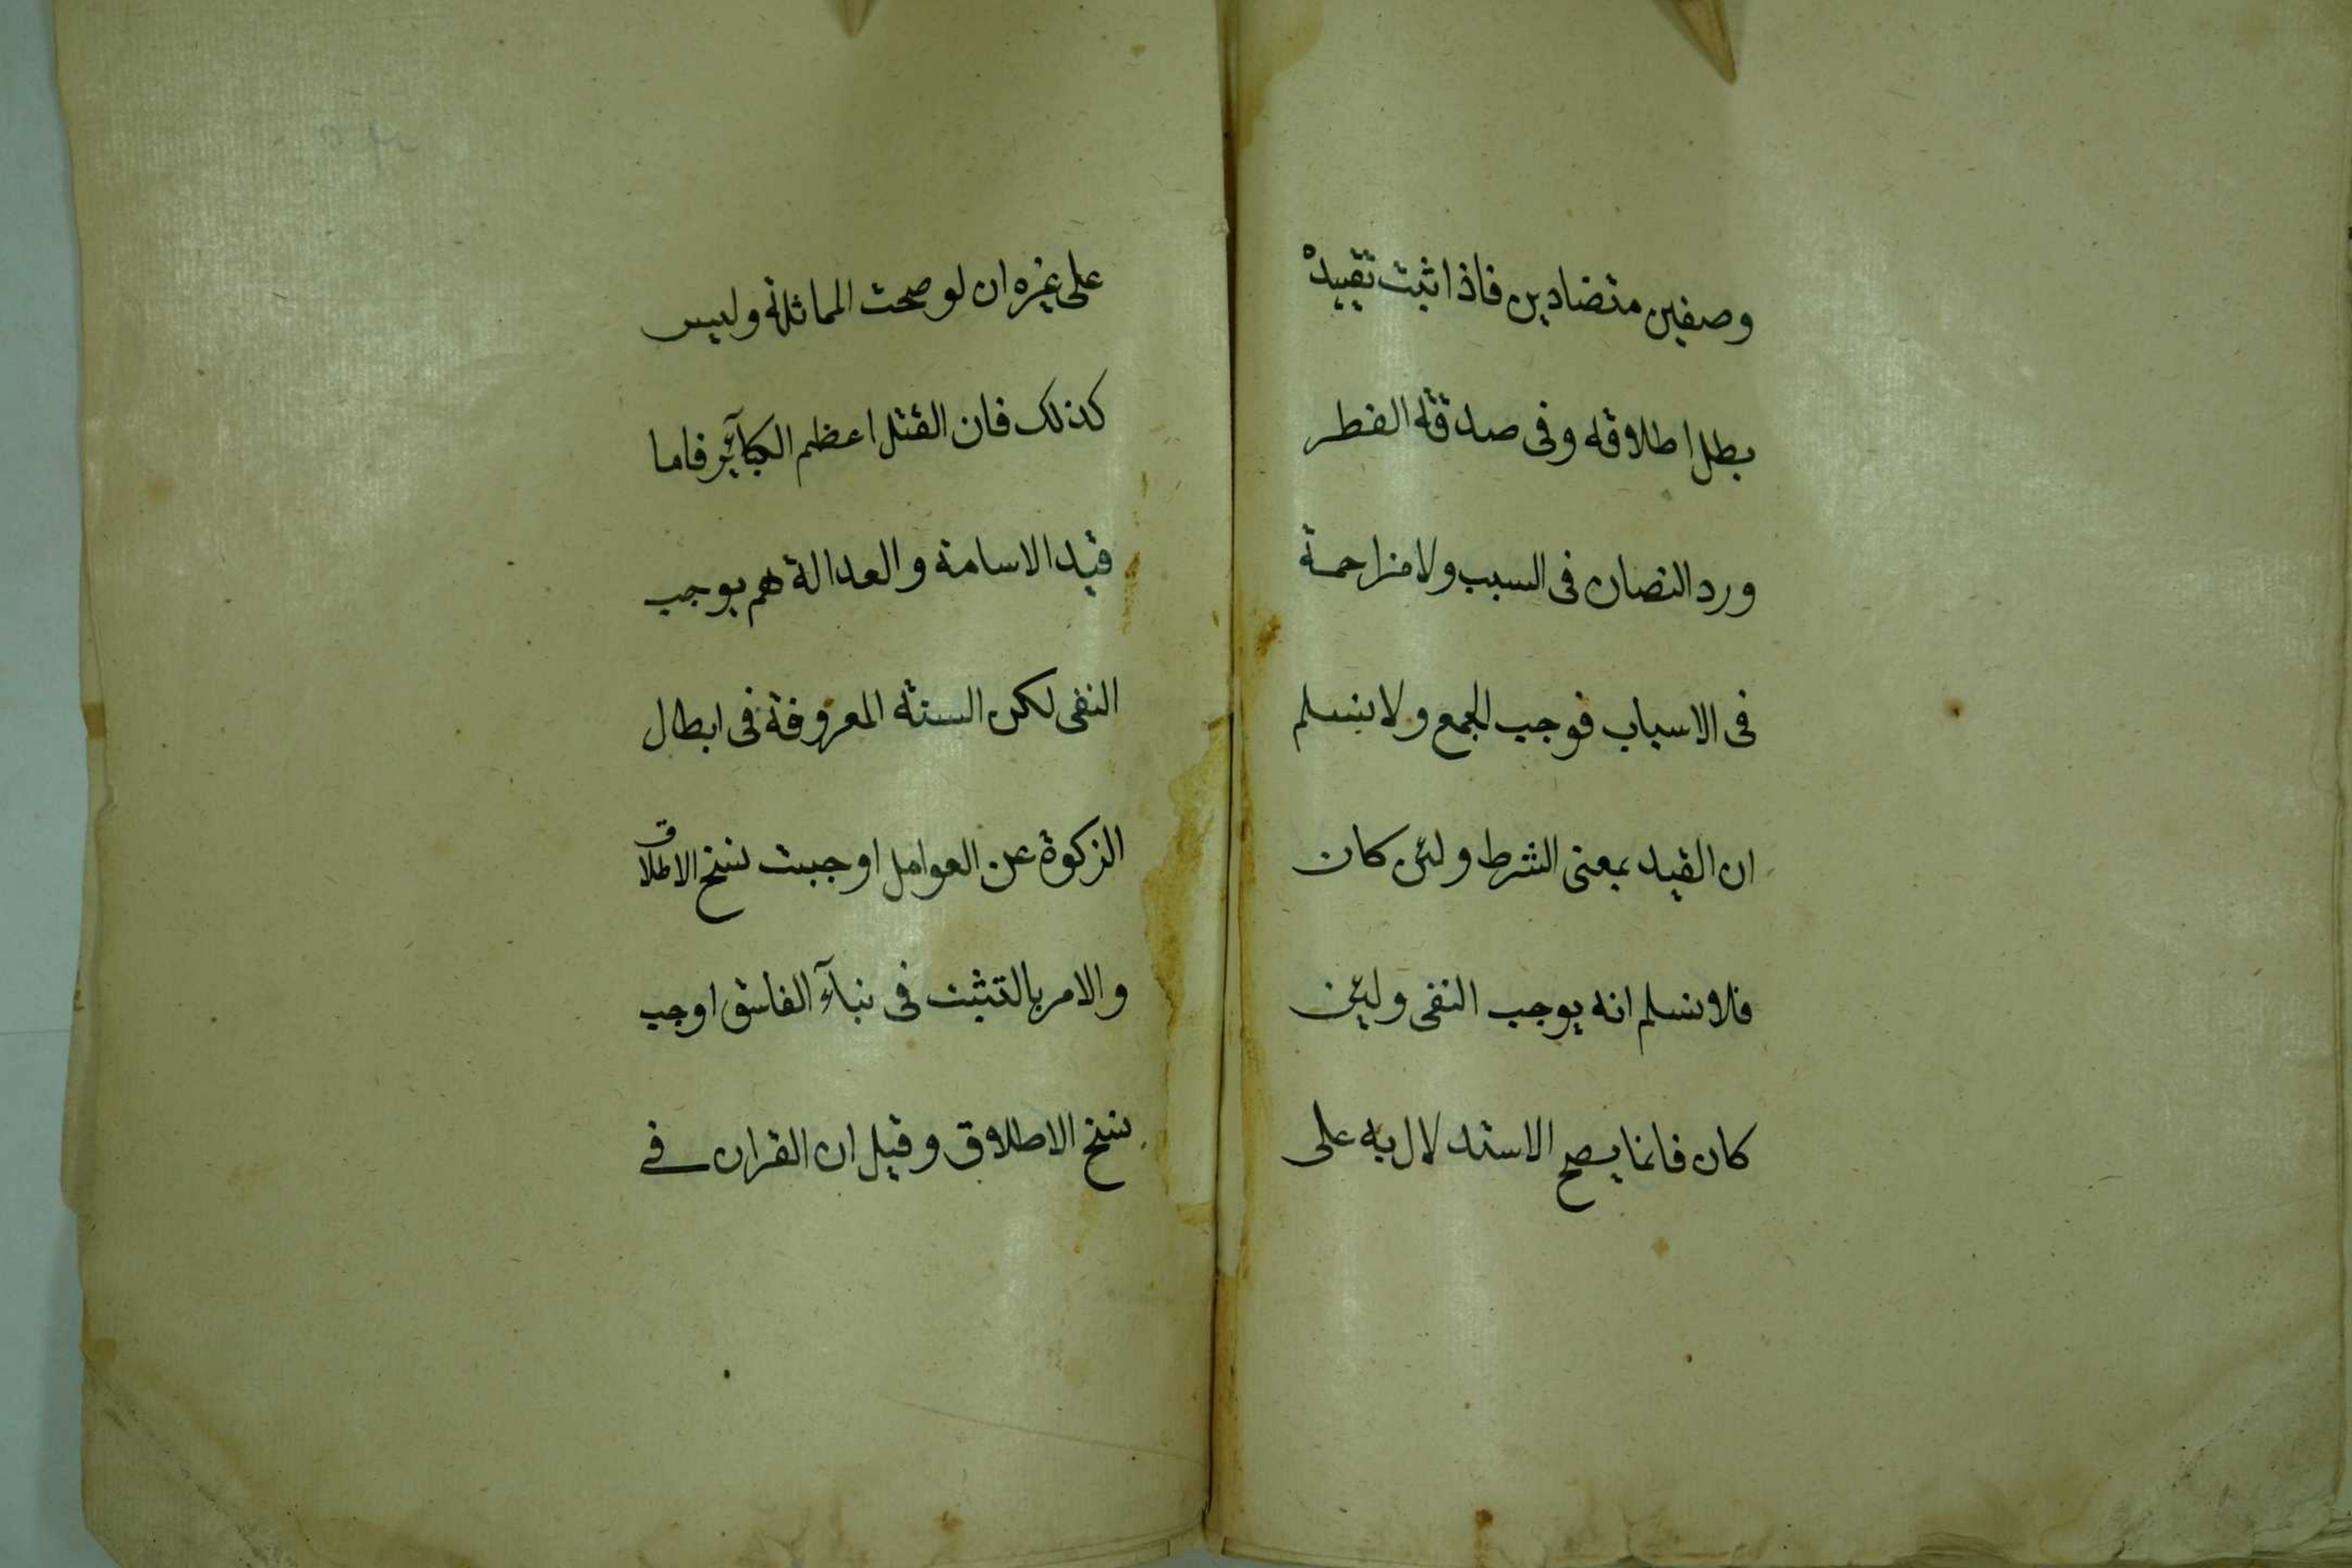 وصفين متضادين فاذا ثبت تقييده
بطل اطلاقه وفى صدقة الفطر
ورد النصان فى السبب ولا مزاحمة
فى الاسباب فوجب الجمع ولا نسلم
ان القيد بمعنى الشرط ولئن كان
فلا نسلم انه يوجب النفى ولئن
كان فانما يصح الاستدلال به على
على غيره ان لو صحت المماثلة وليس
كذلك فان القتل اعظم الكبآئر فاما
قيد الاسامة والعدالة هم يوجب
النفى لكن السنة المعروفة فى ابطال
الزكوة عن العوامل اوجبت نسخ الاطلاق
والامر بالتثبت فى نبآء الفاسق اوجب
نسخ الاطلاق وقيل ان القران فى